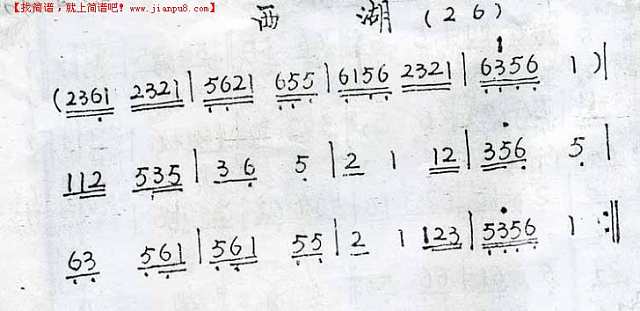 【找简谱，就上简谱吧! www.jianpu8.com】
西 湖 (2 6)
(2361 2321 | 5621 655 | 6156 2321 | 6356 1 ) |
112 535 | 36 5 | 2 1 12 | 356 5 |
63 561 | 561 55 | 2 1 123 | 5356 1 :||